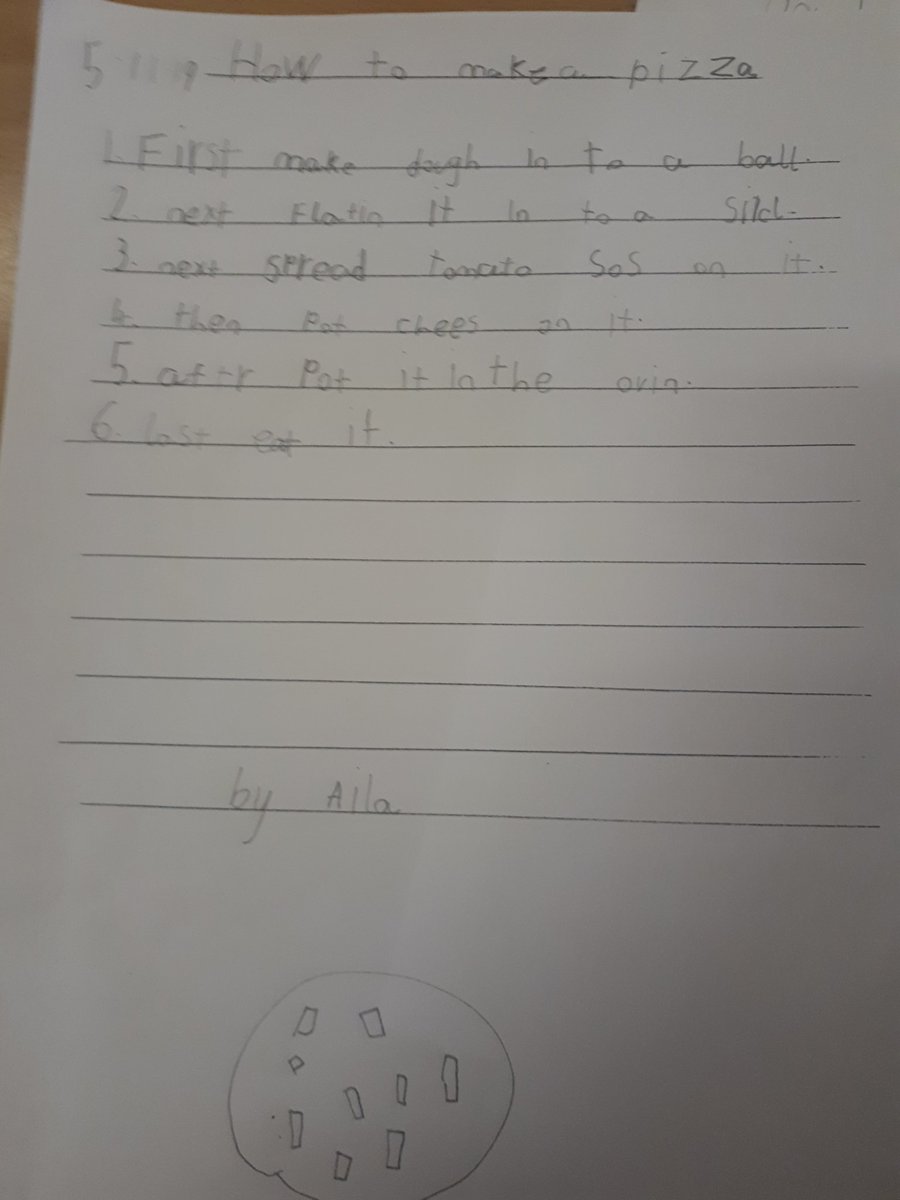 How to make a pizza
1. First make dough in to a ball.
2. next Flatin it in to a
3. next spread tomato SoS on it.
4. then Pot chees on it.
5. aftr Pot it in the ovin.
6. last eat it.
by Aila